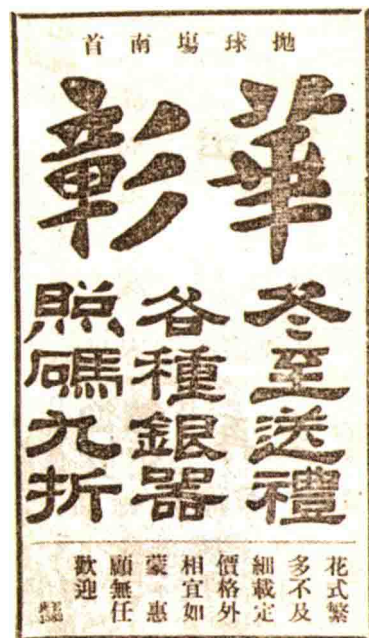 拋球塲南首
華彰
冬至送禮
各種銀器
照碼九折
花式繁
多不及
細載定
價格外
相宜如
蒙　惠
顧無任
歡迎